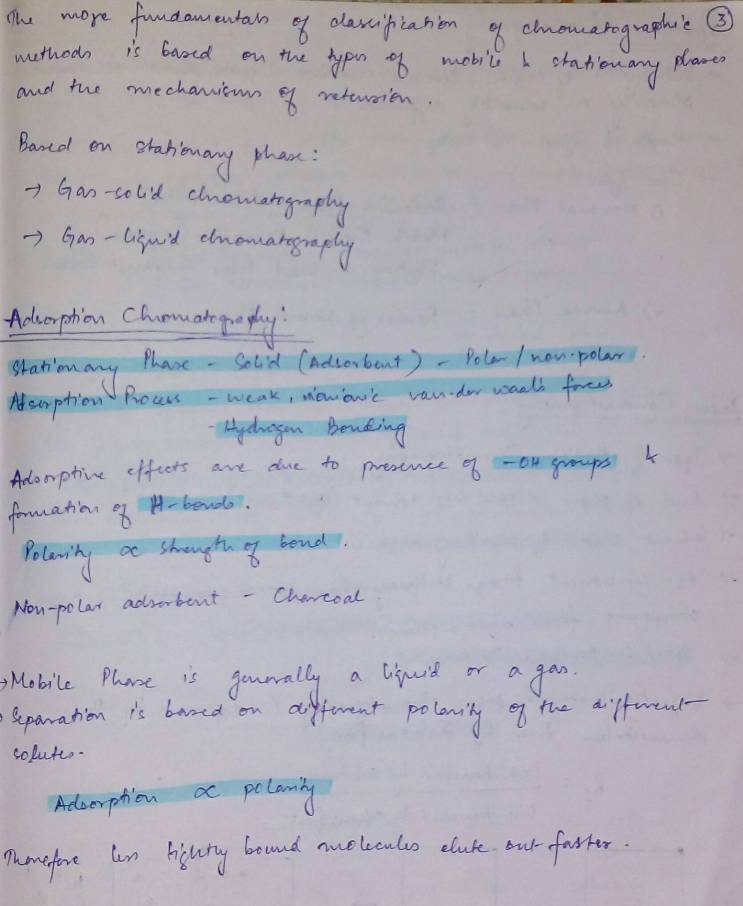 The more fundamentals of classification of chromatographic ③
methods is based on the types of mobile & stationary phases
and the mechanisms of retension.
Based on stationary phase:
→ Gas-solid chromatography
→ Gas-liquid chromatography
Adsorption Chromatography:
Stationary Phase - Solid (Adsorbent) - Polar/non-polar.
Adsorption Process - weak, nonionic van-der waals forces
- Hydrogen Bonding
Adsorptive effects are due to presence of -OH groups &
formation of H-bonds.
Polarity ∝ strength of bond.
Non-polar adsorbent - Charcoal
→ Mobile Phase is generally a liquid or a gas.
Separation is based on different polarity of the different
solutes.
Adsorption ∝ polarity
Therefore less tightly bound molecules elute out faster.